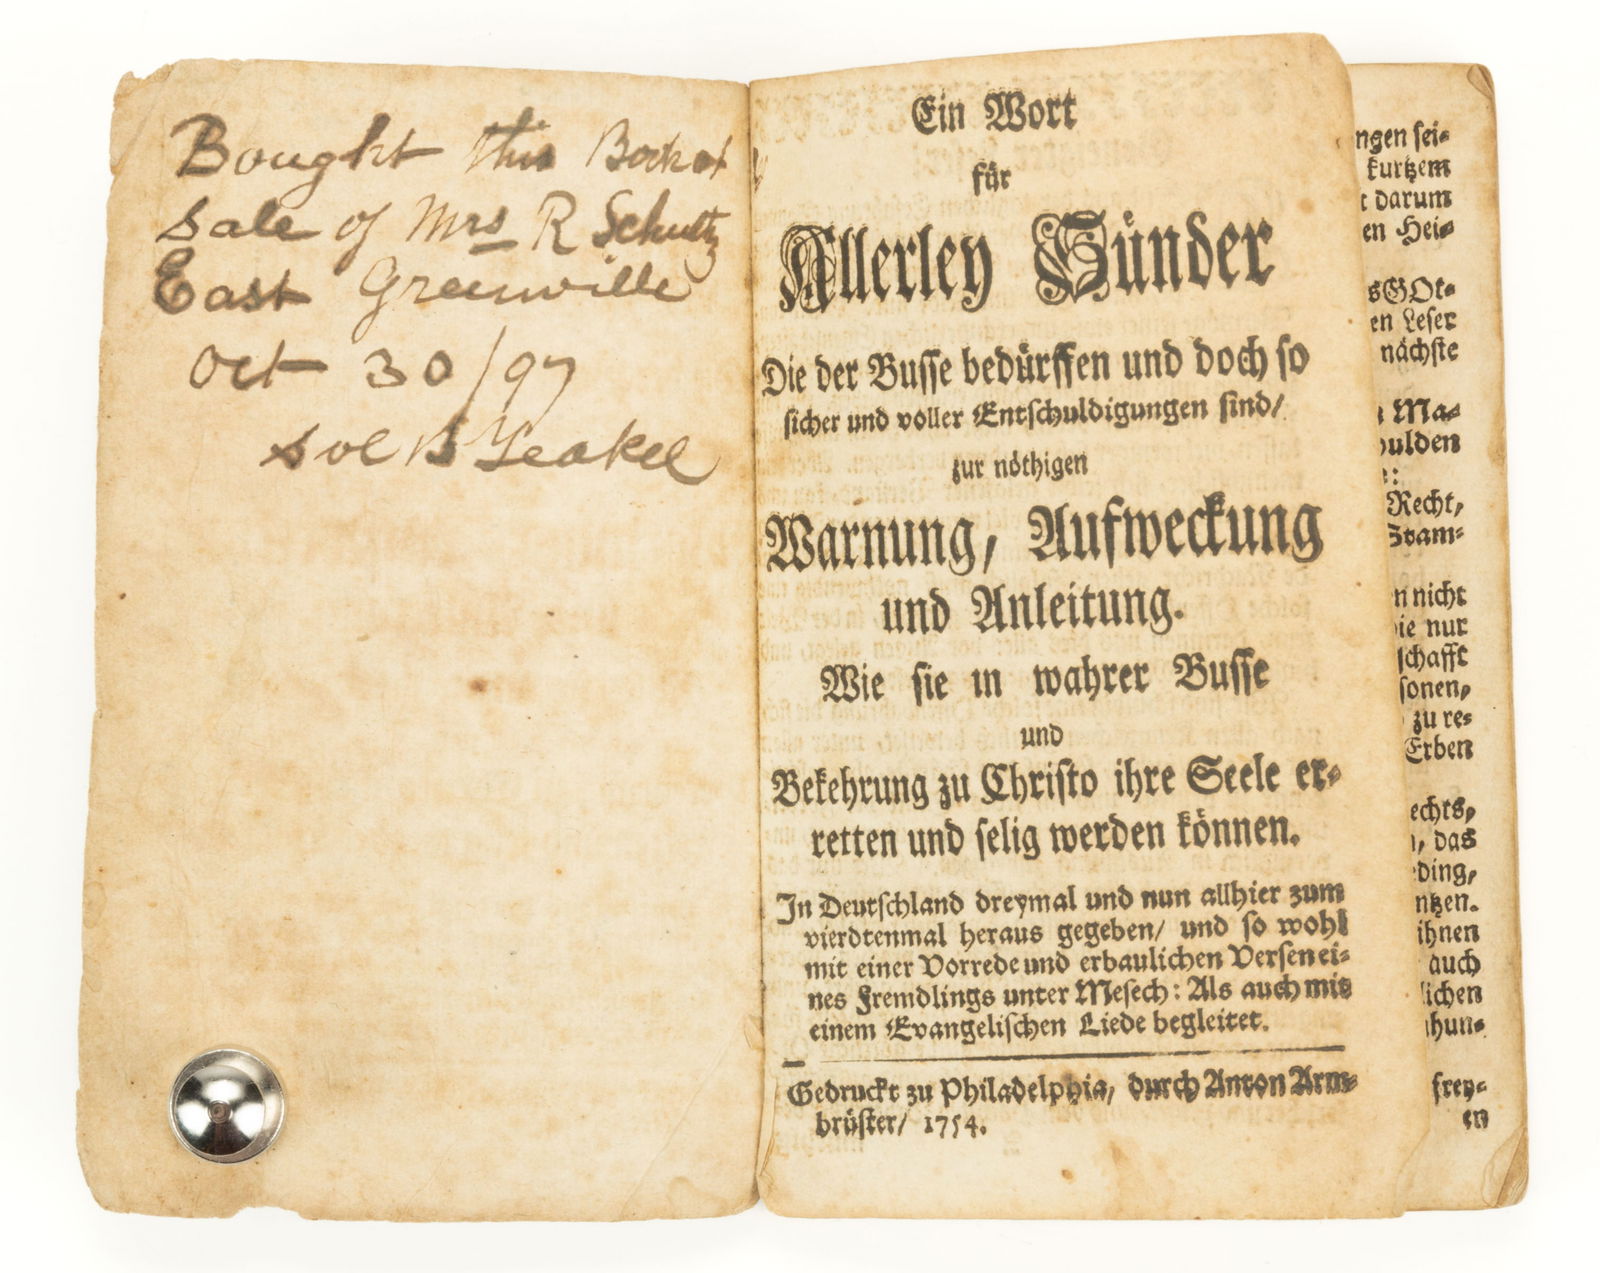 Bought this Book at
sale of Mrs R Schultz
East Greenville
Oct 30/97
Sol B Yeakel
Ein Wort
für
Allerley Sünder
Die der Busse bedürffen und doch so
sicher und voller Entschuldigungen sind/
zur nöthigen
Warnung, Aufweckung
und Anleitung.
Wie sie in wahrer Busse
und
Bekehrung zu Christo ihre Seele er-
retten und selig werden können.
In Deutschland dreymal und nun allhier zum
vierdtenmal heraus gegeben/ und so wohl
mit einer Vorrede und erbaulichen Versen ei-
nes Fremdlings unter Mesech: Als auch mit
einem Evangelischen Liede begleitet.
Gedruckt zu Philadelphia, durch Anton Arm-
brüster/ 1754.
ngen sei-
kurtzem
t darum
en Hei-
sGOt-
en Leser
nächste
Ma-
hulden
e:
Recht,
Fram-
n nicht
ie nur
schafft
sonen,
zu re-
Erben
echts,
n, das
ding,
ntzen.
ihnen
auch
lichen
hun-
frey-
en